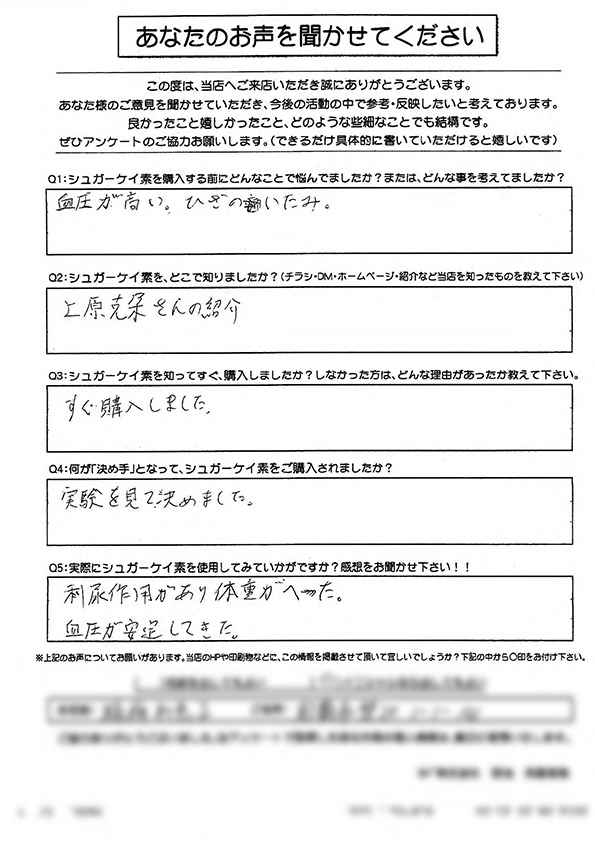 あなたのお声を聞かせてください
この度は、当店へご来店いただき誠にありがとうございます。
あなた様のご意見を聞かせていただき、今後の活動の中で参考・反映したいと考えております。
良かったこと嬉しかったこと、どのような些細なことでも結構です。
ぜひアンケートのご協力お願いします。(できるだけ具体的に書いていただけると嬉しいです)
Q1:シュガーケイ素を購入する前にどんなことで悩んでましたか?または、どんな事を考えてましたか?
血圧が高い。ひざのいたみ。
Q2:シュガーケイ素を、どこで知りましたか?(チラシ・DM・ホームページ・紹介など当店を知ったものを教えて下さい)
上原克 さんの紹介
Q3:シュガーケイ素を知ってすぐ、購入しましたか?しなかった方は、どんな理由があったか教えて下さい。
すぐ購入しました。
Q4:何が「決め手」となって、シュガーケイ素をご購入されましたか?
実験を見て決めました。
Q5:実際にシュガーケイ素を使用してみていかがですか?感想をお聞かせ下さい!!
利尿作用があり体重がへった。
血圧が安定してきた。
※上記のお声についてお願いがあります。当店のHPや印刷物などに、この情報を掲載させて頂いて宜しいでしょうか?下記の中から〇印をお付け下さい。